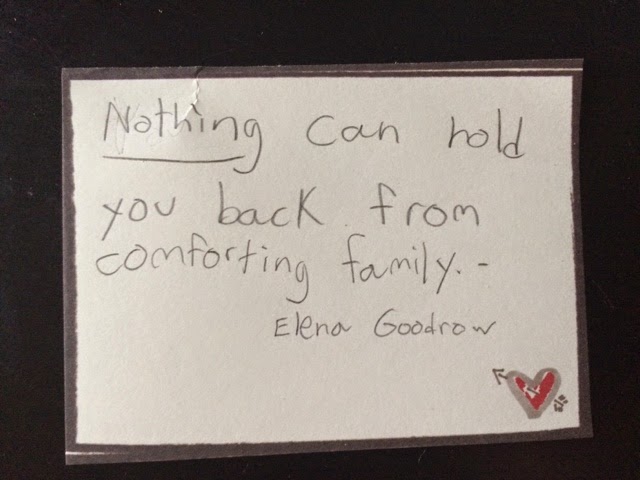 Nothing can hold
you back from
comforting family. -
Elena Goodrow